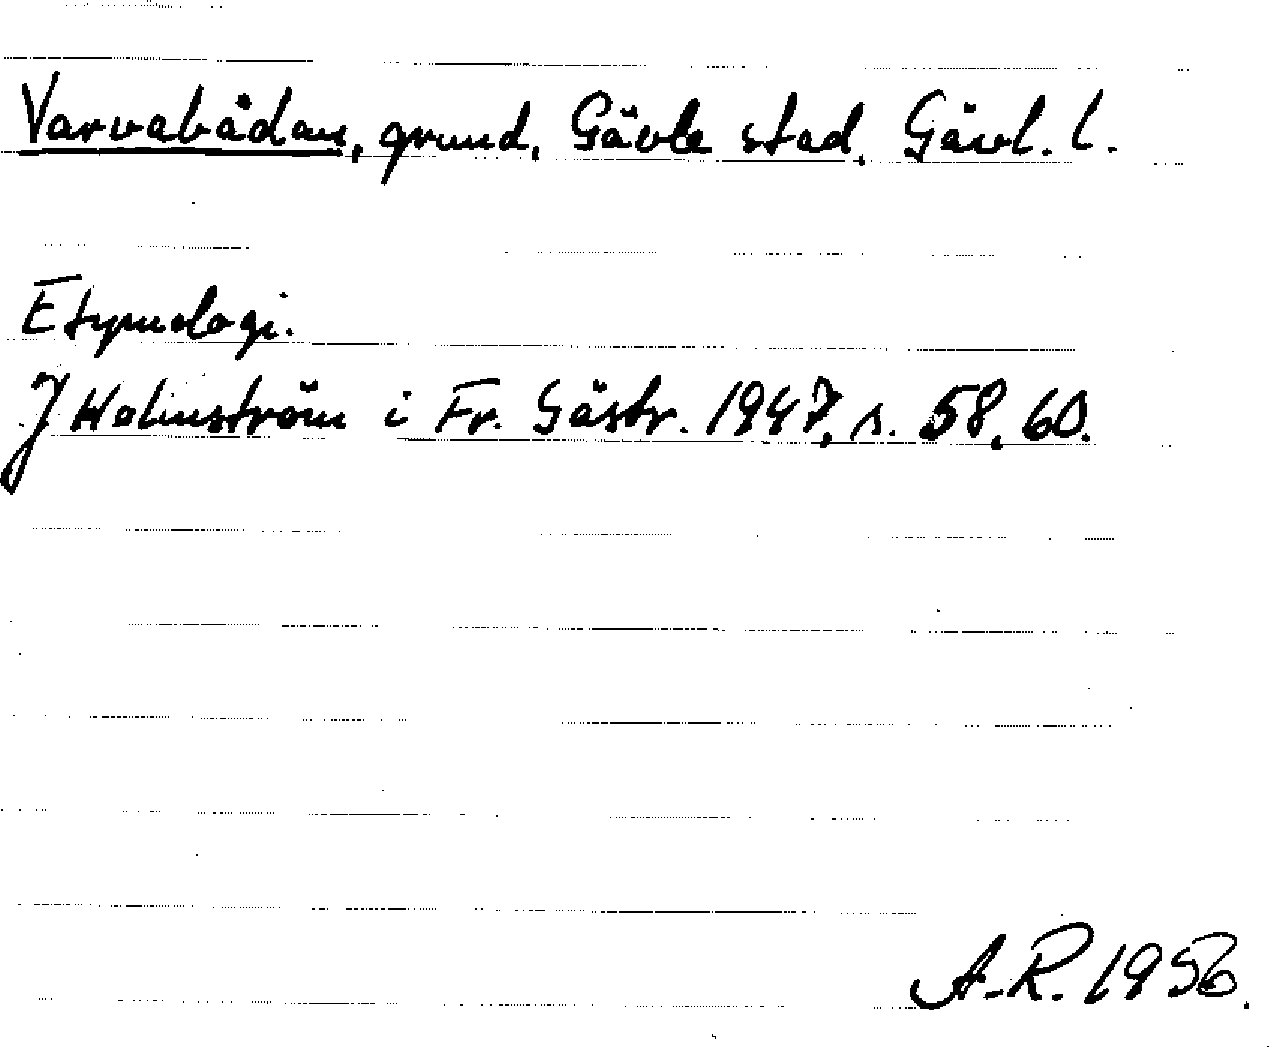 Varvabådan, grund, Gävle stad, Gävl. l.
Etymologi.
J Holmström i Fr. Gästr. 1947, s. 58, 60.
A.R. 1956.